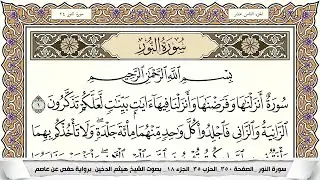 سُورَةُ النُّورِ
بِسْمِ ٱللَّهِ ٱلرَّحْمَٰنِ ٱلرَّحِيمِ
سُورَةٌ أَنزَلْنَٰهَا وَفَرَضْنَٰهَا وَأَنزَلْنَا فِيهَآ ءَايَٰتٍۭ بَيِّنَٰتٍ لَّعَلَّكُمْ تَذَكَّرُونَ ١
ٱلزَّانِيَةُ وَٱلزَّانِي فَٱجْلِدُوا۟ كُلَّ وَٰحِدٍ مِّنْهُمَا مِا۟ئَةَ جَلْدَةٍ وَلَا تَأْخُذْكُم بِهِمَا
سورة النور الصفحة ٣٥٠ الحزب ٣٥ الجزء ١٨ بصوت الشيخ هيثم الدخين برواية حفص عن عاصم